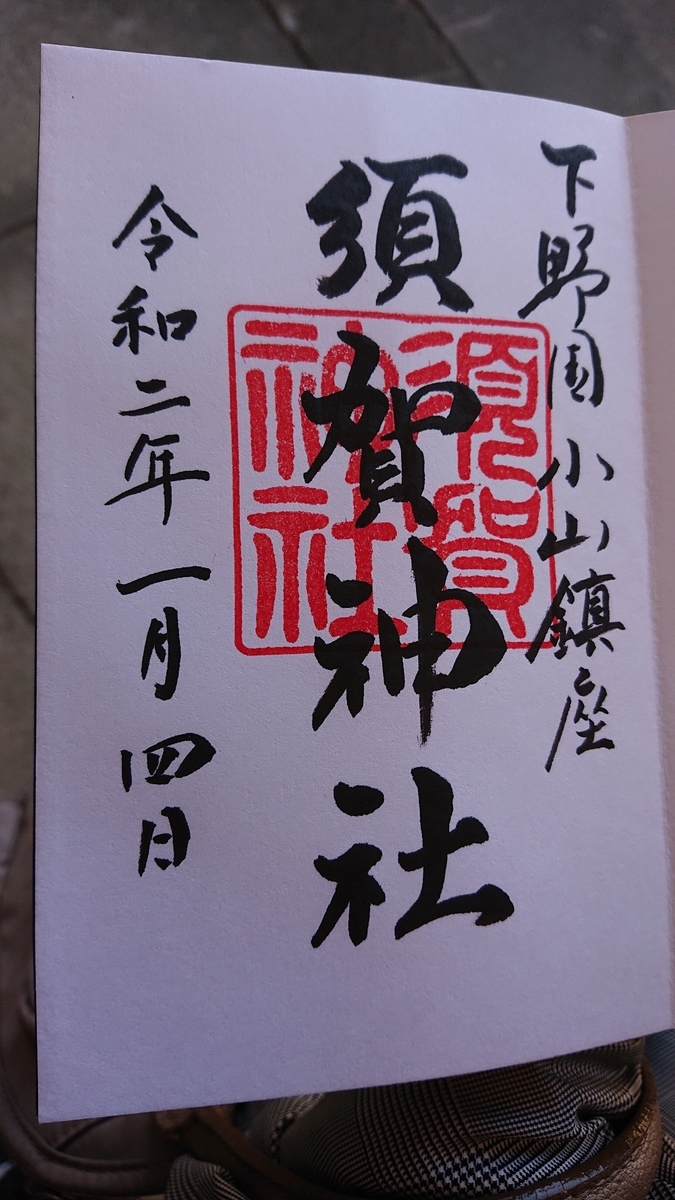 下野国小山鎮座
須賀神社
須賀
神社
令和二年一月四日